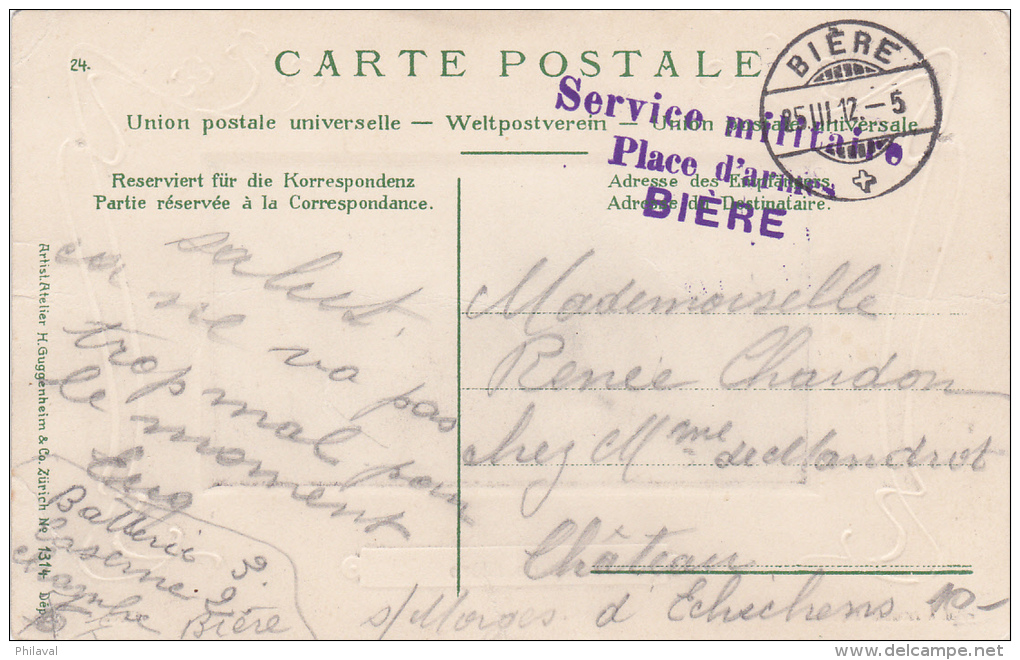 24.
CARTE POSTALE
Union postale universelle — Weltpostverein — Union postale universale
Service militaire
Place d'armes
BIÈRE
BIÈRE
25 III. 12. – 5
Reserviert für die Korrespondenz
Partie réservée à la Correspondance.
Adresse des Empfängers.
Adresse du Destinataire.
salut,
ça ne va pas
trop mal pour
le moment
Batterie 3.
Caserne 2
Chambre
Bière
Mademoiselle
Renée Chardon
chez Mme de Mandrot
Château
d'Echichens
s/Morges
Artist. Atelier H. Guggenheim & Co. Zürich No 1314 Dép.
Philaval
www.delcampe.net